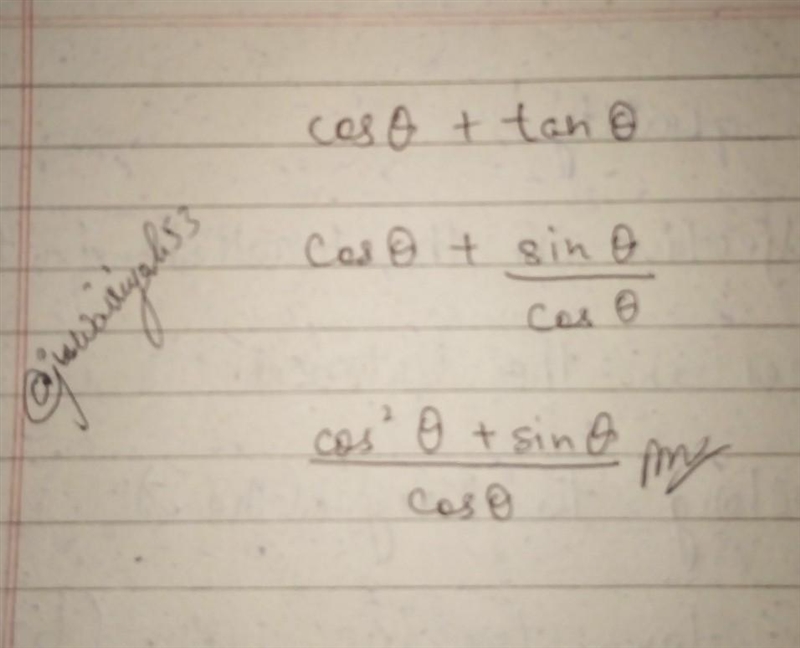 cos θ + tan θ
cos θ + sin θ / cos θ
cos² θ + sin θ / cos θ Ans